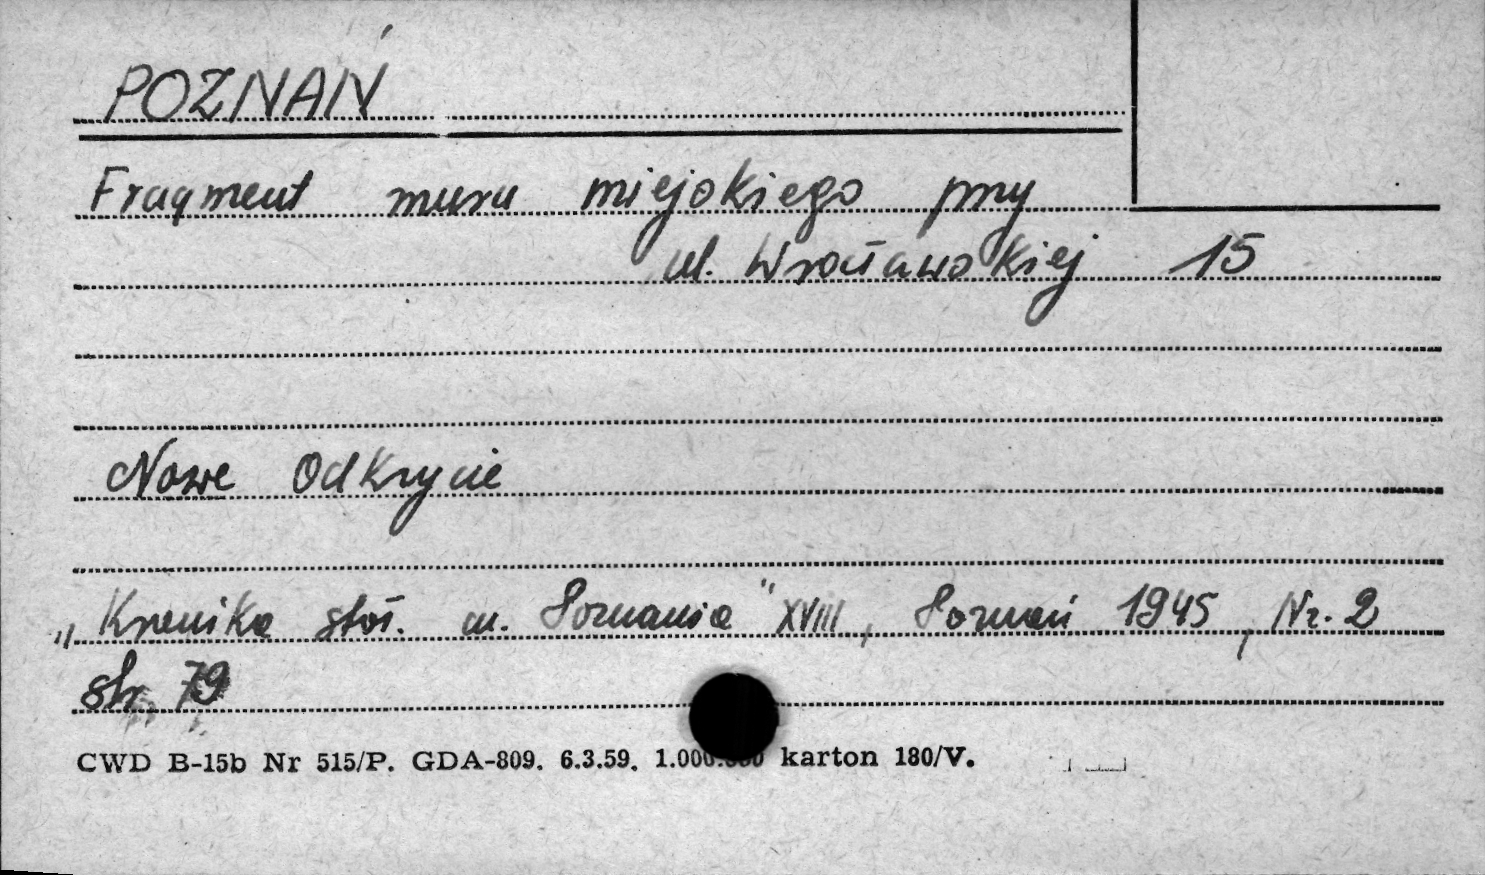 POZNAŃ
Fragment muru miejskiego przy
ul. Wrocławskiej 15
Nowe Odkrycie
„Kronika stoł. m. Poznania" XVIII, Poznań 1945, Nr. 2
str. 79
CWD B-15b Nr 515/P. GDA-809. 6.3.59. 1.000.000 karton 180/V.